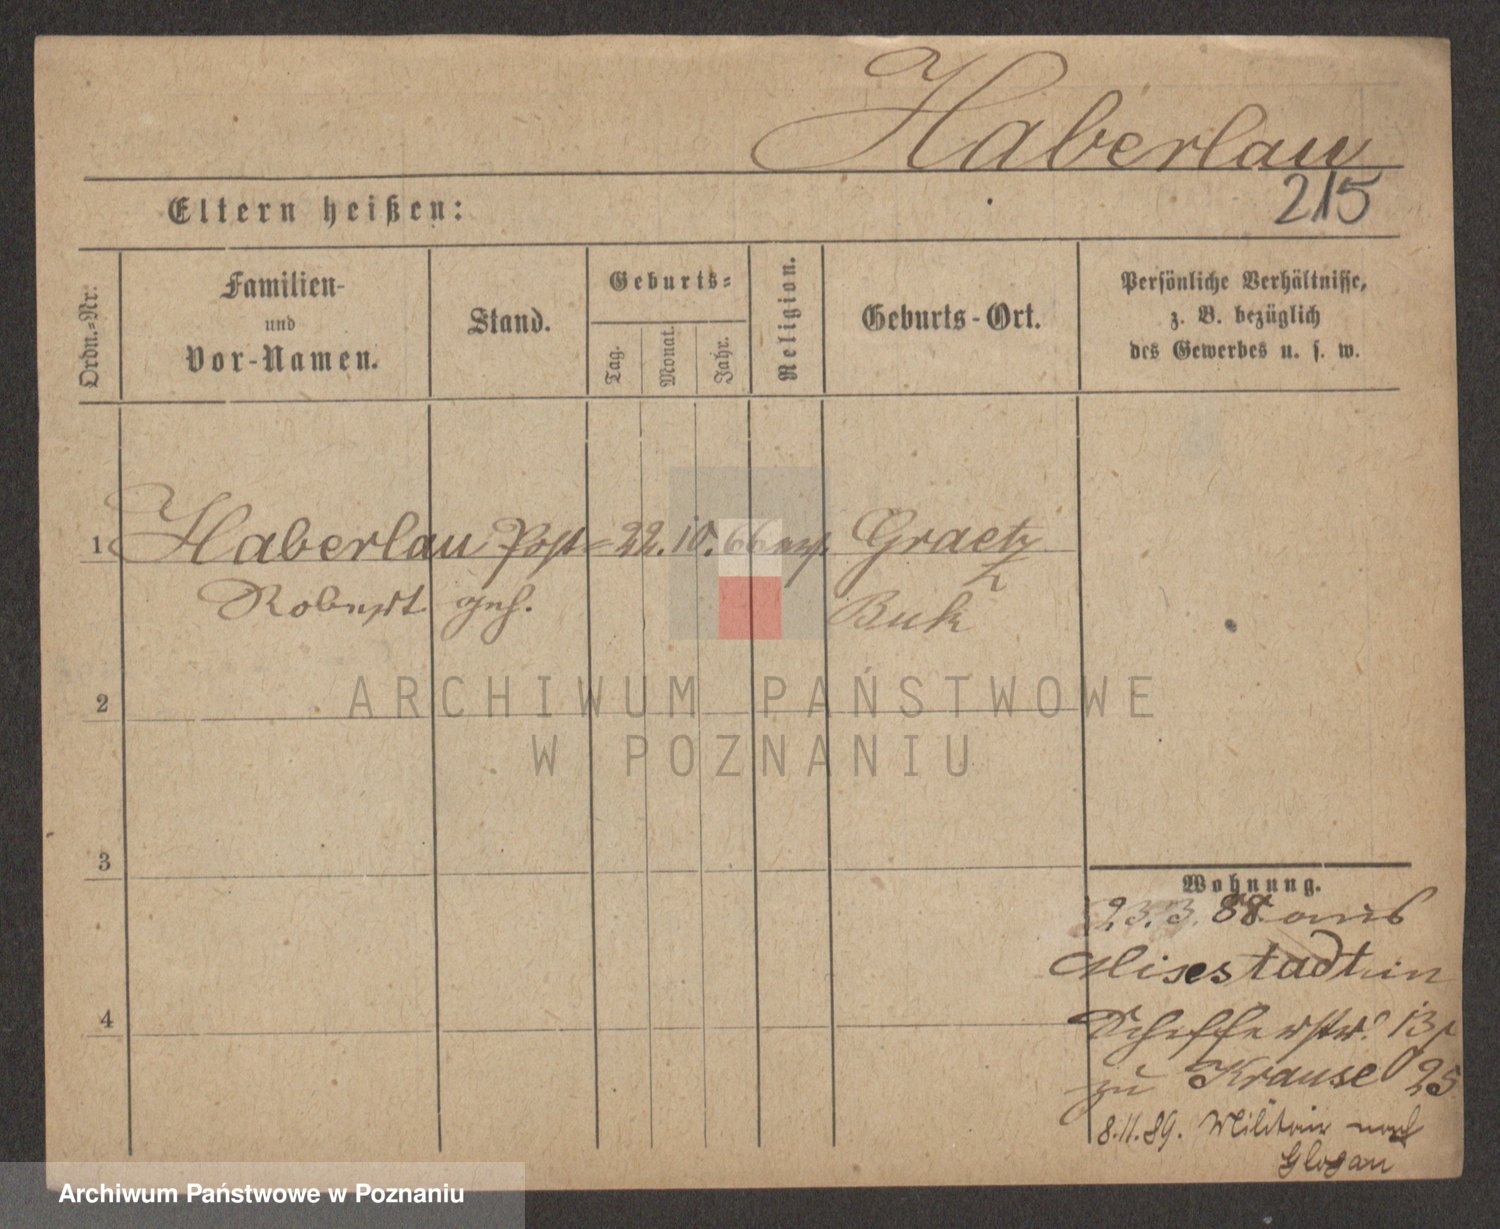 Haberlau
215
Eltern heißen:
Ordn.-Nr:
Familien-
und
Vor-Namen.
Stand.
Geburts-
Tag.
Monat.
Jahr.
Religion.
Geburts-Ort.
Persönliche Verhältnisse,
z. B. bezüglich
des Gewerbes u. s. w.
1 Haberlau Post- 22. 10. 66 Graetz
Robert geh. Buk
ARCHIWUM PAŃSTWOWE
W POZNANIU
2
3
4
Wohnung.
23. 3. 88 aus
stadt in
13
zu Krause 25
8. 11. 89. Militair nach
Glogau
Archiwum Państwowe w Poznaniu